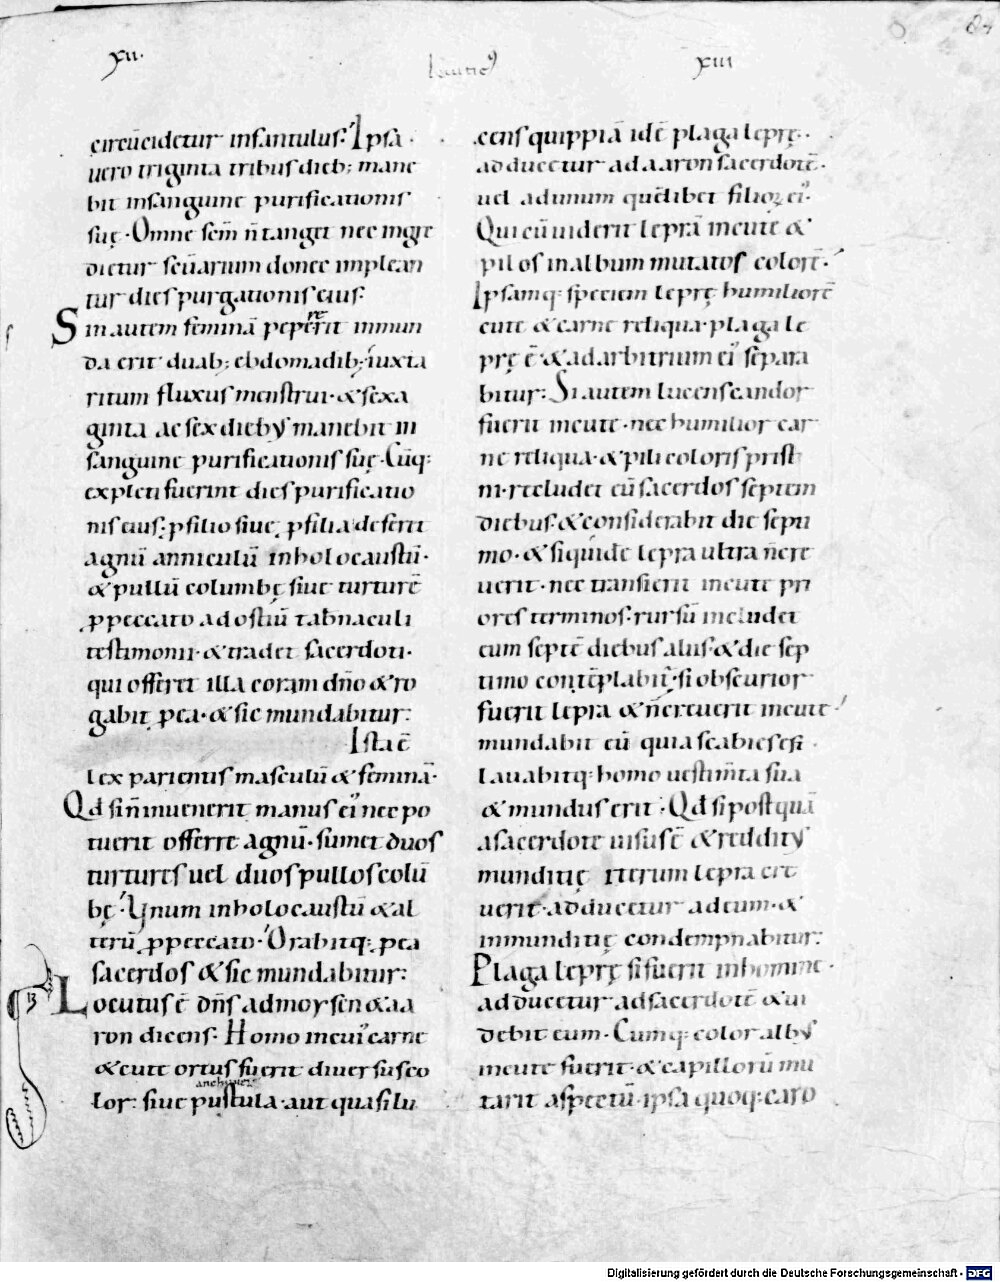 xii.
leuitic⁹
xiii
84
circūcidetur infantulus. Ipsa
uero triginta tribus dieb; mane
bit insanguine purificationis
suę. Omne scm̄ n̄ tanget nec ingre
dietur scūarium donec implean
tur dies purgationis eius.
Sin autem feminā pepererit inmun
da erit duab; ebdomadib; iuxta
ritum fluxus menstrui. & sexa
ginta ac sex dieb⁹ manebit in
sanguine purificationis suę. Cūq;
expleti fuerint dies purificatio
nis eius. ꝓ filio siue ꝓ filia deferet
agnū anniculū in holocaustū.
& pullū columbę siue turturē
ꝓ peccato ad ostiū tab̄naculi
testimonii. & tradet sacerdoti.
qui offeret illa coram dn̄o & ro
gabit ꝓ ea. & sic mundabitur.
Ista ē
lex parientis masculū & feminā.
Qd si n̄ inuenerit manus ei⁹ nec po
tuerit offerre agnū. sumet duos
turtures uel duos pullos colū
bę. Vnum in holocaustū & al
terū ꝓ peccato. Orabitq; ꝓ ea
sacerdos & sic mundabitur.
13
Locutus ē dn̄s ad moysen & aa
ron dicens. Homo in cui⁹ carne
& cute ortus fuerit diuersus co
lor. siue pustula. aut quasi lu
cens quippiā idē plaga leprę.
adducetur ad aaron sacerdotē.
uel ad unum quēlibet filioꝝ ei⁹.
Qui cū uiderit leprā in cute &
pilos in album mutatos colorē.
Ipsamq; speciem leprę humiliorē
cute & carne reliqua. plaga le
prę ē. & ad arbitrium ei⁹ separa
bitur. Si autem lucens candor
fuerit in cute. nec humilior car
ne reliqua. & pili coloris prist
ni. recludet eū sacerdos septem
diebus. & considerabit die septi
mo. & siquidē lepra ultra n̄ cre
uerit. nec transierit in cute pri
ores terminos. rursū includet
eum septē diebus aliis. & die sep
timo contēplabit̄. si obscurior
fuerit lepra & n̄ creuerit in cute
mundabit eū quia scabies est.
Lauabitq; homo uestim̄ta sua
& mundus erit. Qd si postquā
a sacerdote uisus ē & reddit⁹
munditię iterum lepra cre
uerit. adducetur ad eum. &
inmunditię condempnabitur.
Plaga leprę si fuerit in homine.
adducetur ad sacerdotē & ui
debit eum. Cumq; color alb⁹
in cute fuerit. & capillorū mu
tarit aspectū. ipsa quoq; caro
Digitalisierung gefördert durch die Deutsche Forschungsgemeinschaft - DFG